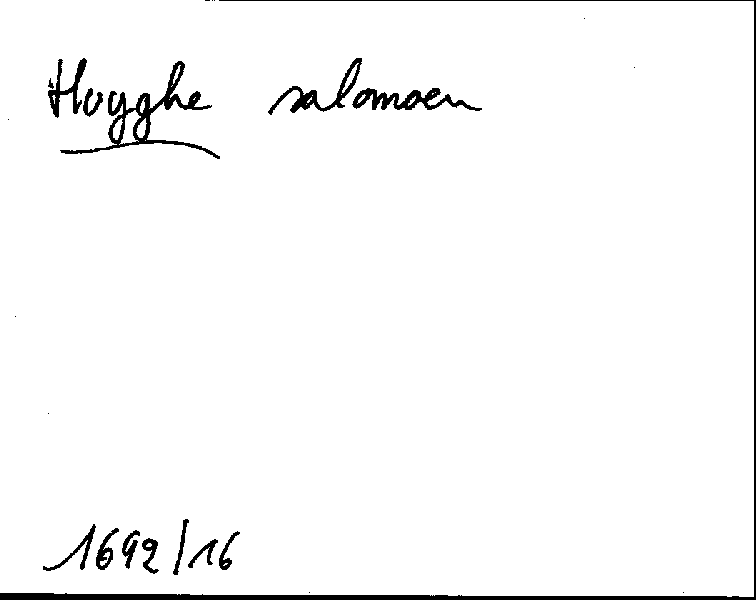 Huyghe salomoen
1692/16